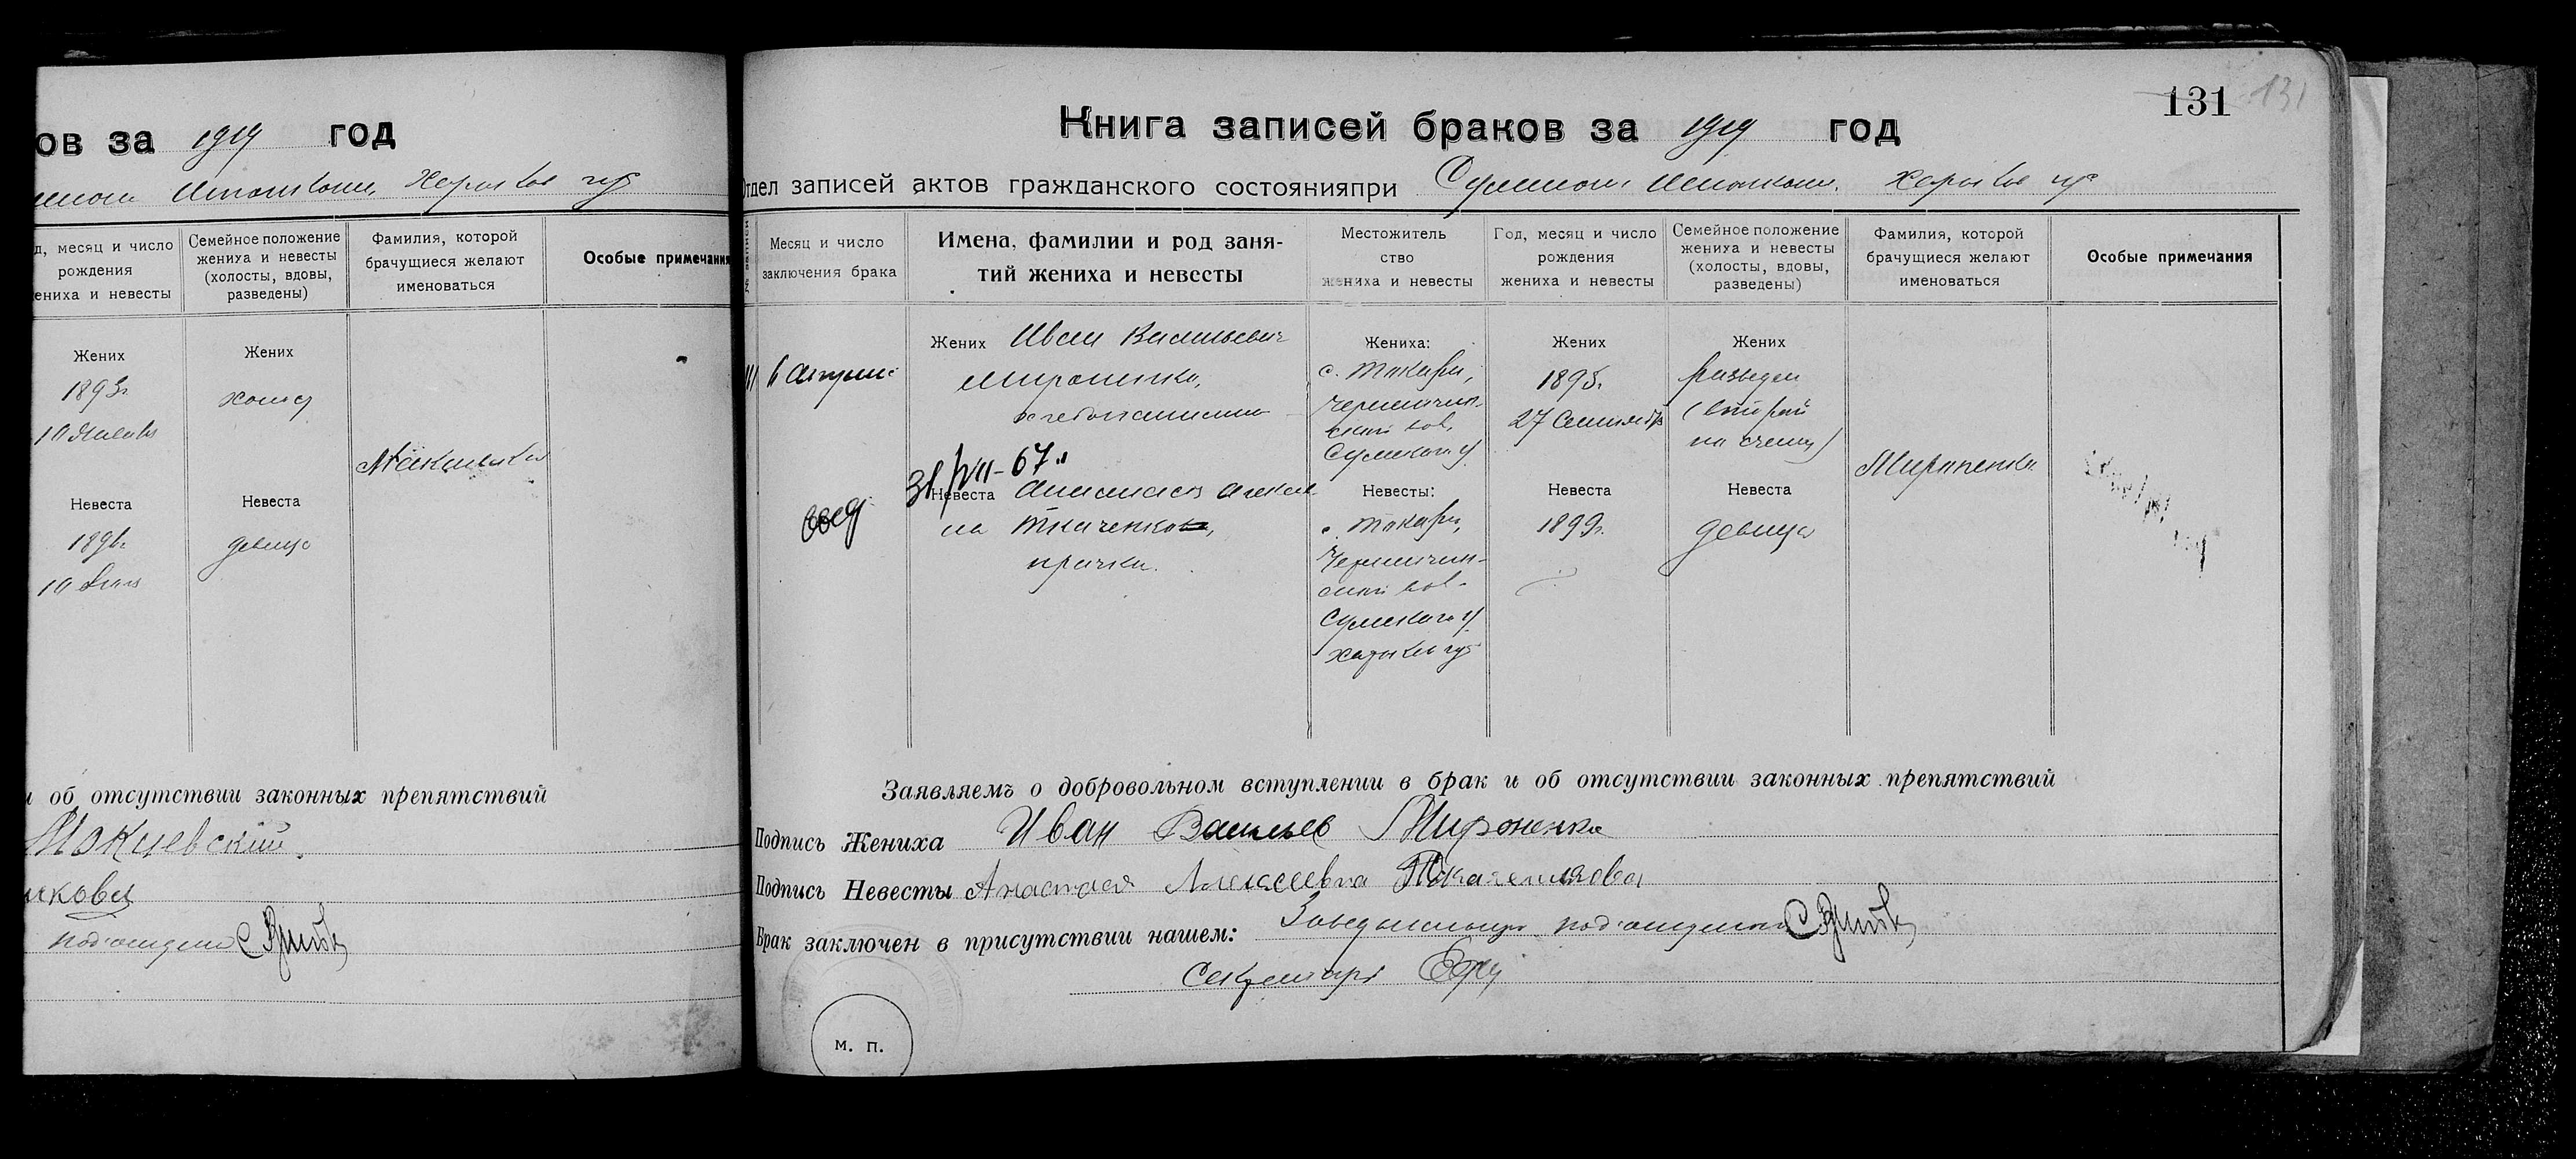 ов за 1919 год
Харьков губ
д, месяц и число
рождения
ениха и невесты
Семейное положение
жениха и невесты
(холосты, вдовы,
разведены)
Фамилия, которой
брачущиеся желают
именоваться
Особые примечания
Жених
1893г.
Жених
холост
Невеста
Невеста
девица
и об отсутствии законных препятствий
Мокиевский
икова
под'отделом
131
131
Книга записей браков за 1919 год
Отдел записей актов гражданского состояния при Сумском Исполком. Харьков губ
№ записи
Месяц и число
заключения брака
Имена, фамилии и род заня-
тий жениха и невесты
Местожитель
ство
жениха и невесты
Год, месяц и число
рождения
жениха и невесты
Семейное положение
жениха и невесты
(холосты, вдовы,
разведены)
Фамилия, которой
брачущиеся желают
именоваться
Особые примечания
Жених Иван Васильевич
Мироненко,
хлебопашец
31/VII-67г.
Невеста Анастасия Алексеев-
на Ткаченкова,
прачка.
Жениха:
с. Токари,
Сумского у
Невесты:
с. Токари,
Сумского у
Харьков губ
Жених
1895г.
27 Сентября
Невеста
1899г.
Жених
разведен
(второй
по счету)
Невеста
девица
Мироненко
Заявляемъ о добровольном вступлении в брак и об отсутствии законных препятствий
Подпись Жениха Иван Васильев Мироненко
Подпись Невесты Анастася Алексеевна Ткаченкова
Брак заключен в присутствии нашем: Заведывающий под'отделом
Секретарь
м. п.